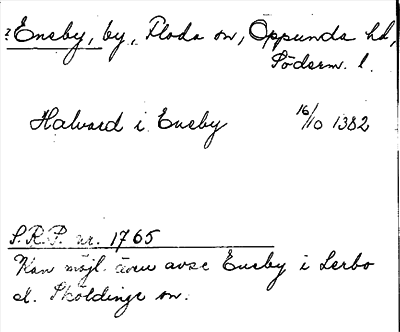 ? Eneby, by, Floda sn, Oppunda hd,
Söderm. l.
Halvard i Eneby 16/10 1382
S.R.P. nr. 1765
Kan möjl. även avse Eneby i Lerbo
el. Sköldinge sn.